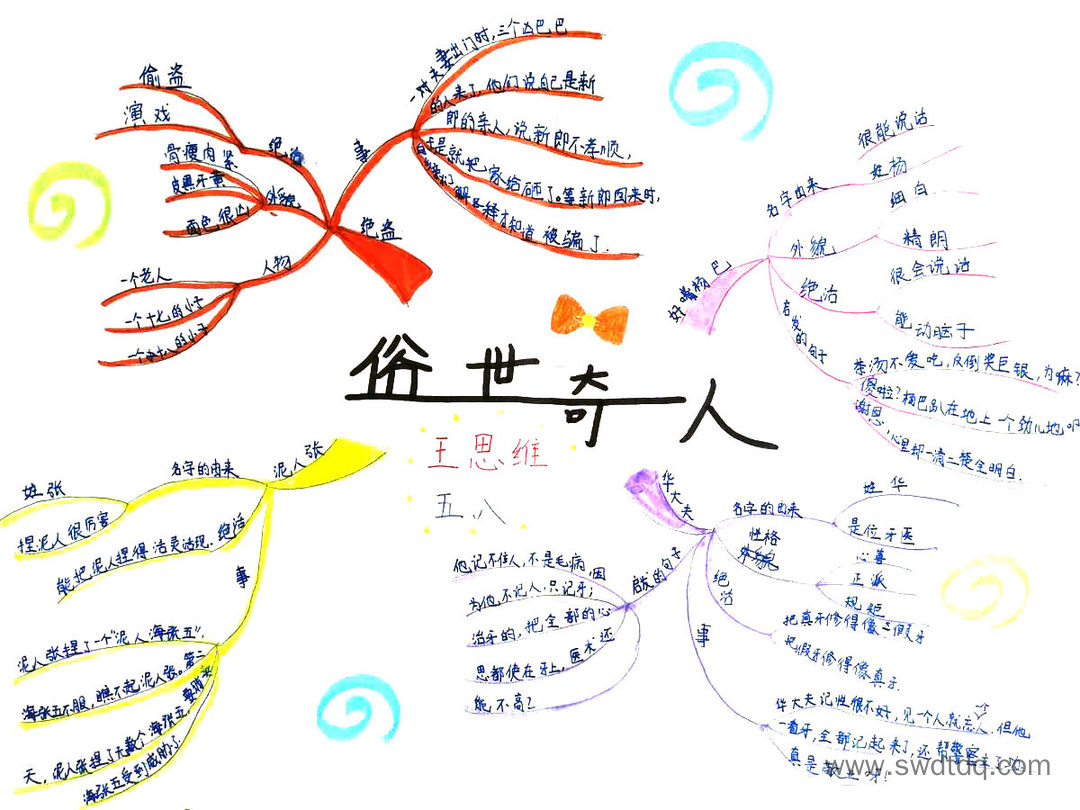 俗世奇人
王思维
五八
绝盗
绝活
偷盗
演戏
外貌
骨瘦肉紧
皮黑牙黄
面色很凶
人物
一个老人
一个十七的小子
一个十八的小子
事
一对夫妻出门时,三个凶巴巴
的人来了,他们说自己是新
郎的亲人,说新郎不孝顺,
于是就把家给砸了。等新郎回来时,
解释才知道被骗了.
好嘴杨巴
名字由来
很能说话
姓杨
外貌
细白
精朗
绝活
很会说话
能动脑子
启发的句子
茶汤不爱吃,反倒奖巨银,为嘛?
傻啦?杨巴趴在地上一个劲儿地叩
谢恩,心里却一清二楚全明白.
泥人张
名字的由来
姓张
捏泥人很厉害
绝活
能把泥人捏得活灵活现.
事
泥人张捏了一个“泥人海张五”.
海张五不服,瞧不起泥人张。第二
天,泥人张捏了无数个海张五,要贱卖
海张五受到威胁了.
华大夫
名字的由来
姓华
是位牙医
性格
心善
正派
规矩
绝活
把真牙修得像假牙
把假牙修得像真牙.
事
华大夫记性很不好,见一个人就忘一个人.但他
一看牙,全都记起来了,还帮警察
真是敬业呀!
启发的句子
他记不住人,不是毛病,因
为他不记人.只记牙;
治牙的,把全部的心
思都使在牙上,医术还
能不高?
www.swdtdq.com